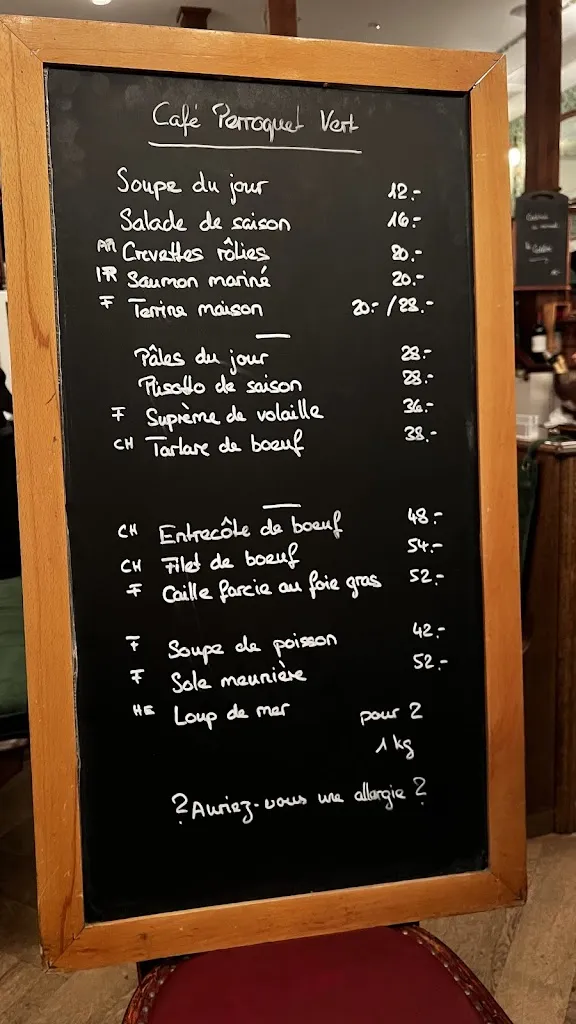 Café Perroquet Vert
Soupe du jour 12.-
Salade de saison 16.-
AR Crevettes rôties 20.-
IR Saumon mariné 20.-
F Terrine maison 20.- / 28.-
Pâtes du jour 28.-
Risotto de saison 28.-
F Suprème de volaille 36.-
CH Tartare de boeuf 38.-
CH Entrecôte de boeuf 48.-
CH Filet de boeuf 54.-
F Caille farcie au foie gras 52.-
F Soupe de poisson 42.-
F Sole meunière 52.-
Loup de mer pour 2
1 kg
? Auriez-vous une allergie ?